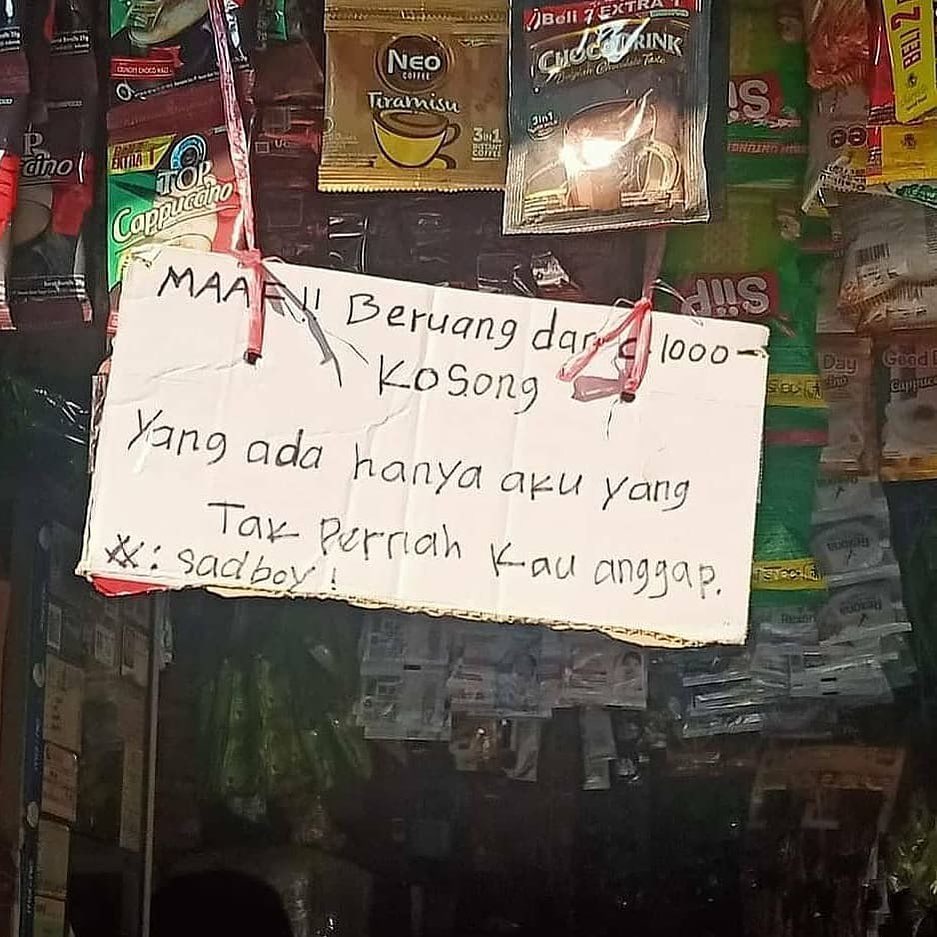 Beli 7 EXTRA 1
NEO
COFFEE
Tiramisu
3in1
INSTANT
COFFEE
CHOCODRINK
Belgian Chocolate Taste
3in1
BELI 2
EXTRA 1
TOP
Cappuccino
cino
MAAF!! Beruang dan C.1000-
Kosong
Yang ada hanya aku yang
Tak Pernah Kau anggap.
: sadboy!
Day
Good D
Rexona
Rexona